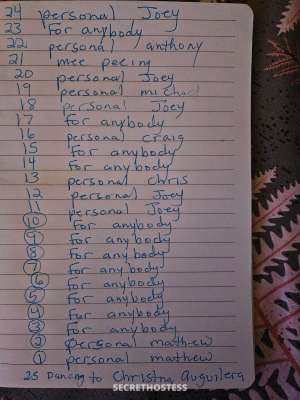 24 personal Joey
23 For anybody
22 personal anthony
21 mee peeing
20 personal Joey
19 personal michael
18 personal Joey
17 for anybody
16 personal craig
15 for anybody
14 for anybody
13 personal chris
12 personal Joey
11 personal Joey
10 for anybody
9 for anybody
8 for anybody
7 for anybody
6 for anybody
5 for anybody
4 for anybody
3 for anybody
2 personal mathew
1 personal mathew
25 Dancing to Christna auguilera
SECRETHOSTESS